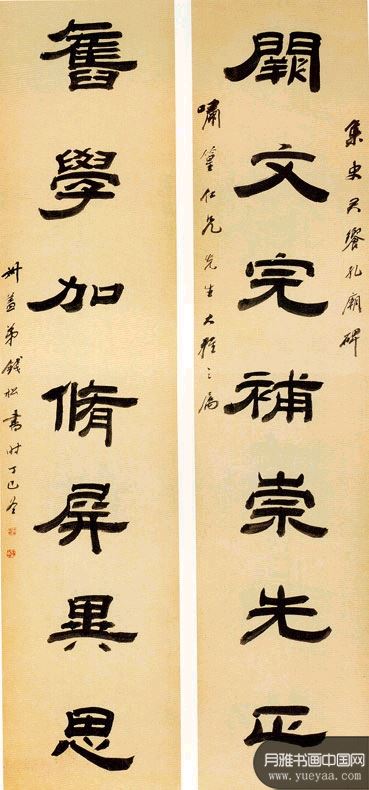 集史君饗孔廟碑
闕文完補崇先正
嘯篁仁兄先生大雅之屬
舊學加脩屏異思
叔蓋弟錢松書時丁巳
月雅书画中国网
www.yueyaa.com